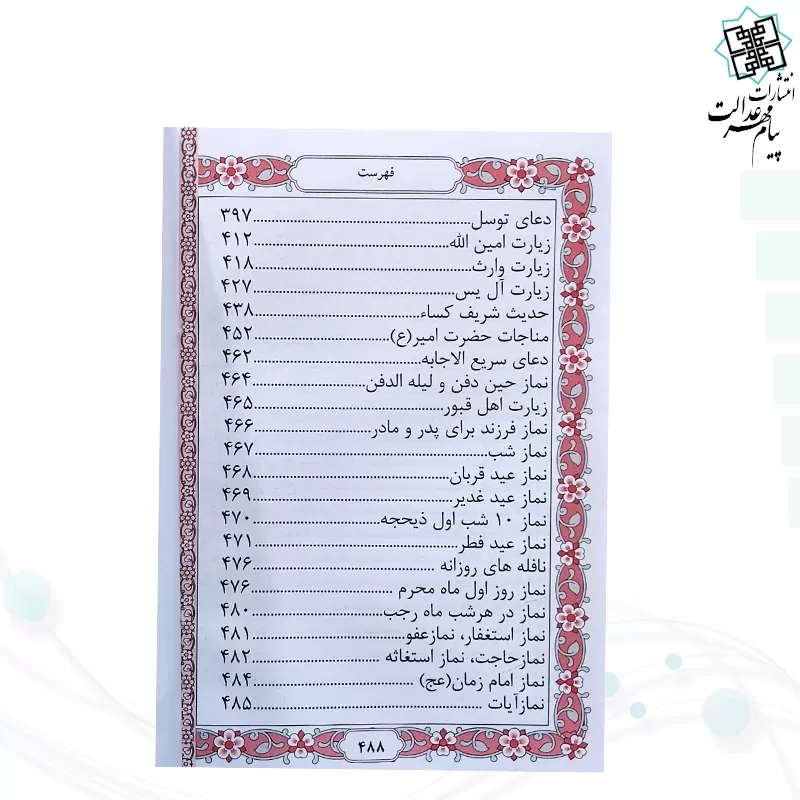 انتشارات
پیام مهر عدالت
فهرست
دعای توسل......................................................۳۹۷
زیارت امین الله................................................۴۱۲
زیارت وارث......................................................۴۱۸
زیارت آل یس..................................................۴۲۷
حدیث شریف کساء.........................................۴۳۸
مناجات حضرت امیر(ع)..................................۴۵۲
دعای سریع الاجابه..........................................۴۶۲
نماز حین دفن و لیله الدفن............................۴۶۴
زیارت اهل قبور...............................................۴۶۵
نماز فرزند برای پدر و مادر.............................۴۶۶
نماز شب..........................................................۴۶۷
نماز عید قربان.................................................۴۶۸
نماز عید غدیر.................................................۴۶۹
نماز ۱۰ شب اول ذیحجه................................۴۷۰
نماز عید فطر...................................................۴۷۱
نافله های روزانه .............................................۴۷۶
نماز روز اول ماه محرم ...................................۴۷۶
نماز در هرشب ماه رجب.................................۴۸۰
نماز استغفار، نمازعفو......................................۴۸۱
نمازحاجت، نماز استغاثه ................................۴۸۲
نماز امام زمان(عج) .........................................۴۸۴
نمازآیات .........................................................۴۸۵
۴۸۸